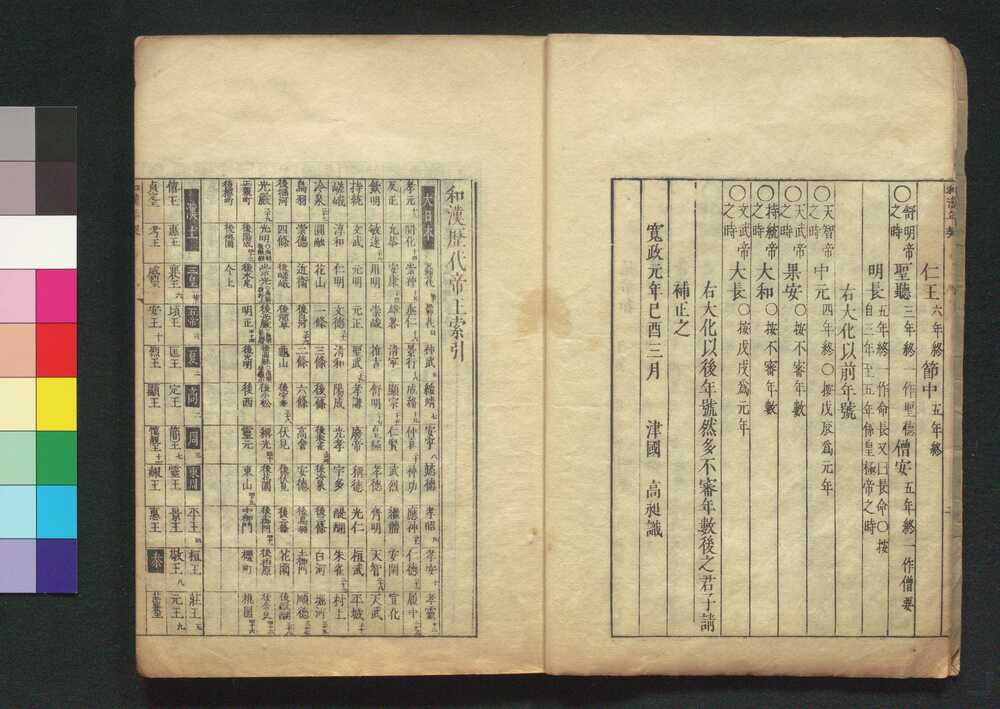 仁王 六年終 節中 五年終
〇舒明帝之時 聖聽 三年終一作聖德 僧安 五年終一作僧要
明長 五年終一作命長又曰長命〇按自三年至五年係皇極帝之時
右大化以前年號
〇天智帝之時 中元 四年終〇按戊辰爲元年
〇天武帝之時 果安 〇按不審年數
〇持統帝之時 大和 〇按不審年數
〇文武帝之時 大長 〇按戊戌爲元年
右大化以後年號然多不審年數後之君子請
補正之
寬政元年己酉三月 津國 高昶識
和漢歷代帝王索引
大日本 神武 綏靖 安寧 懿德 孝昭 孝安 孝靈
孝元 開化 崇神 垂仁 景行 成務 仲哀 神功 應神 仁德 履中
反正 允恭 安康 雄畧 清寧 顯宗 仁賢 武烈 繼體 安閑 宣化
欽明 敏達 用明 崇峻 推古 舒明 皇極 孝德 齊明 天智 天武
持統 文武 元明 元正 聖武 孝謙 廢帝 稱德 光仁 桓武 平城
嵯峨 淳和 仁明 文德 清和 陽成 光孝 宇多 醍醐 朱雀 村上
冷泉 圓融 花山 一條 三條 後一條 後朱雀 後冷泉 後三條 白河 堀河
鳥羽 崇德 近衛 後白河 二條 六條 高倉 安德 後鳥羽 土御門 順德
後堀河 四條 後嵯峨 後深草 龜山 後宇多 伏見 後伏見 後二條 花園 後醍醐
光嚴 光明 崇光 後光嚴 後圓融 後小松 稱光 後花園 後土御門 後柏原 後奈良
正親町 後陽成 後水尾 明正 後光明 後西 靈元 東山 中御門 櫻町 桃園
後櫻町 後桃園 今上
漢土 三皇 五帝 夏 商 周 東周 平王 桓王 莊王
僖王 惠王 襄王 頃王 匡王 定王 簡王 靈王 景王 敬王 元王
貞定王 考王 威烈王 安王 烈王 顯王 愼靚王 赧王 惠王 秦 莊襄王